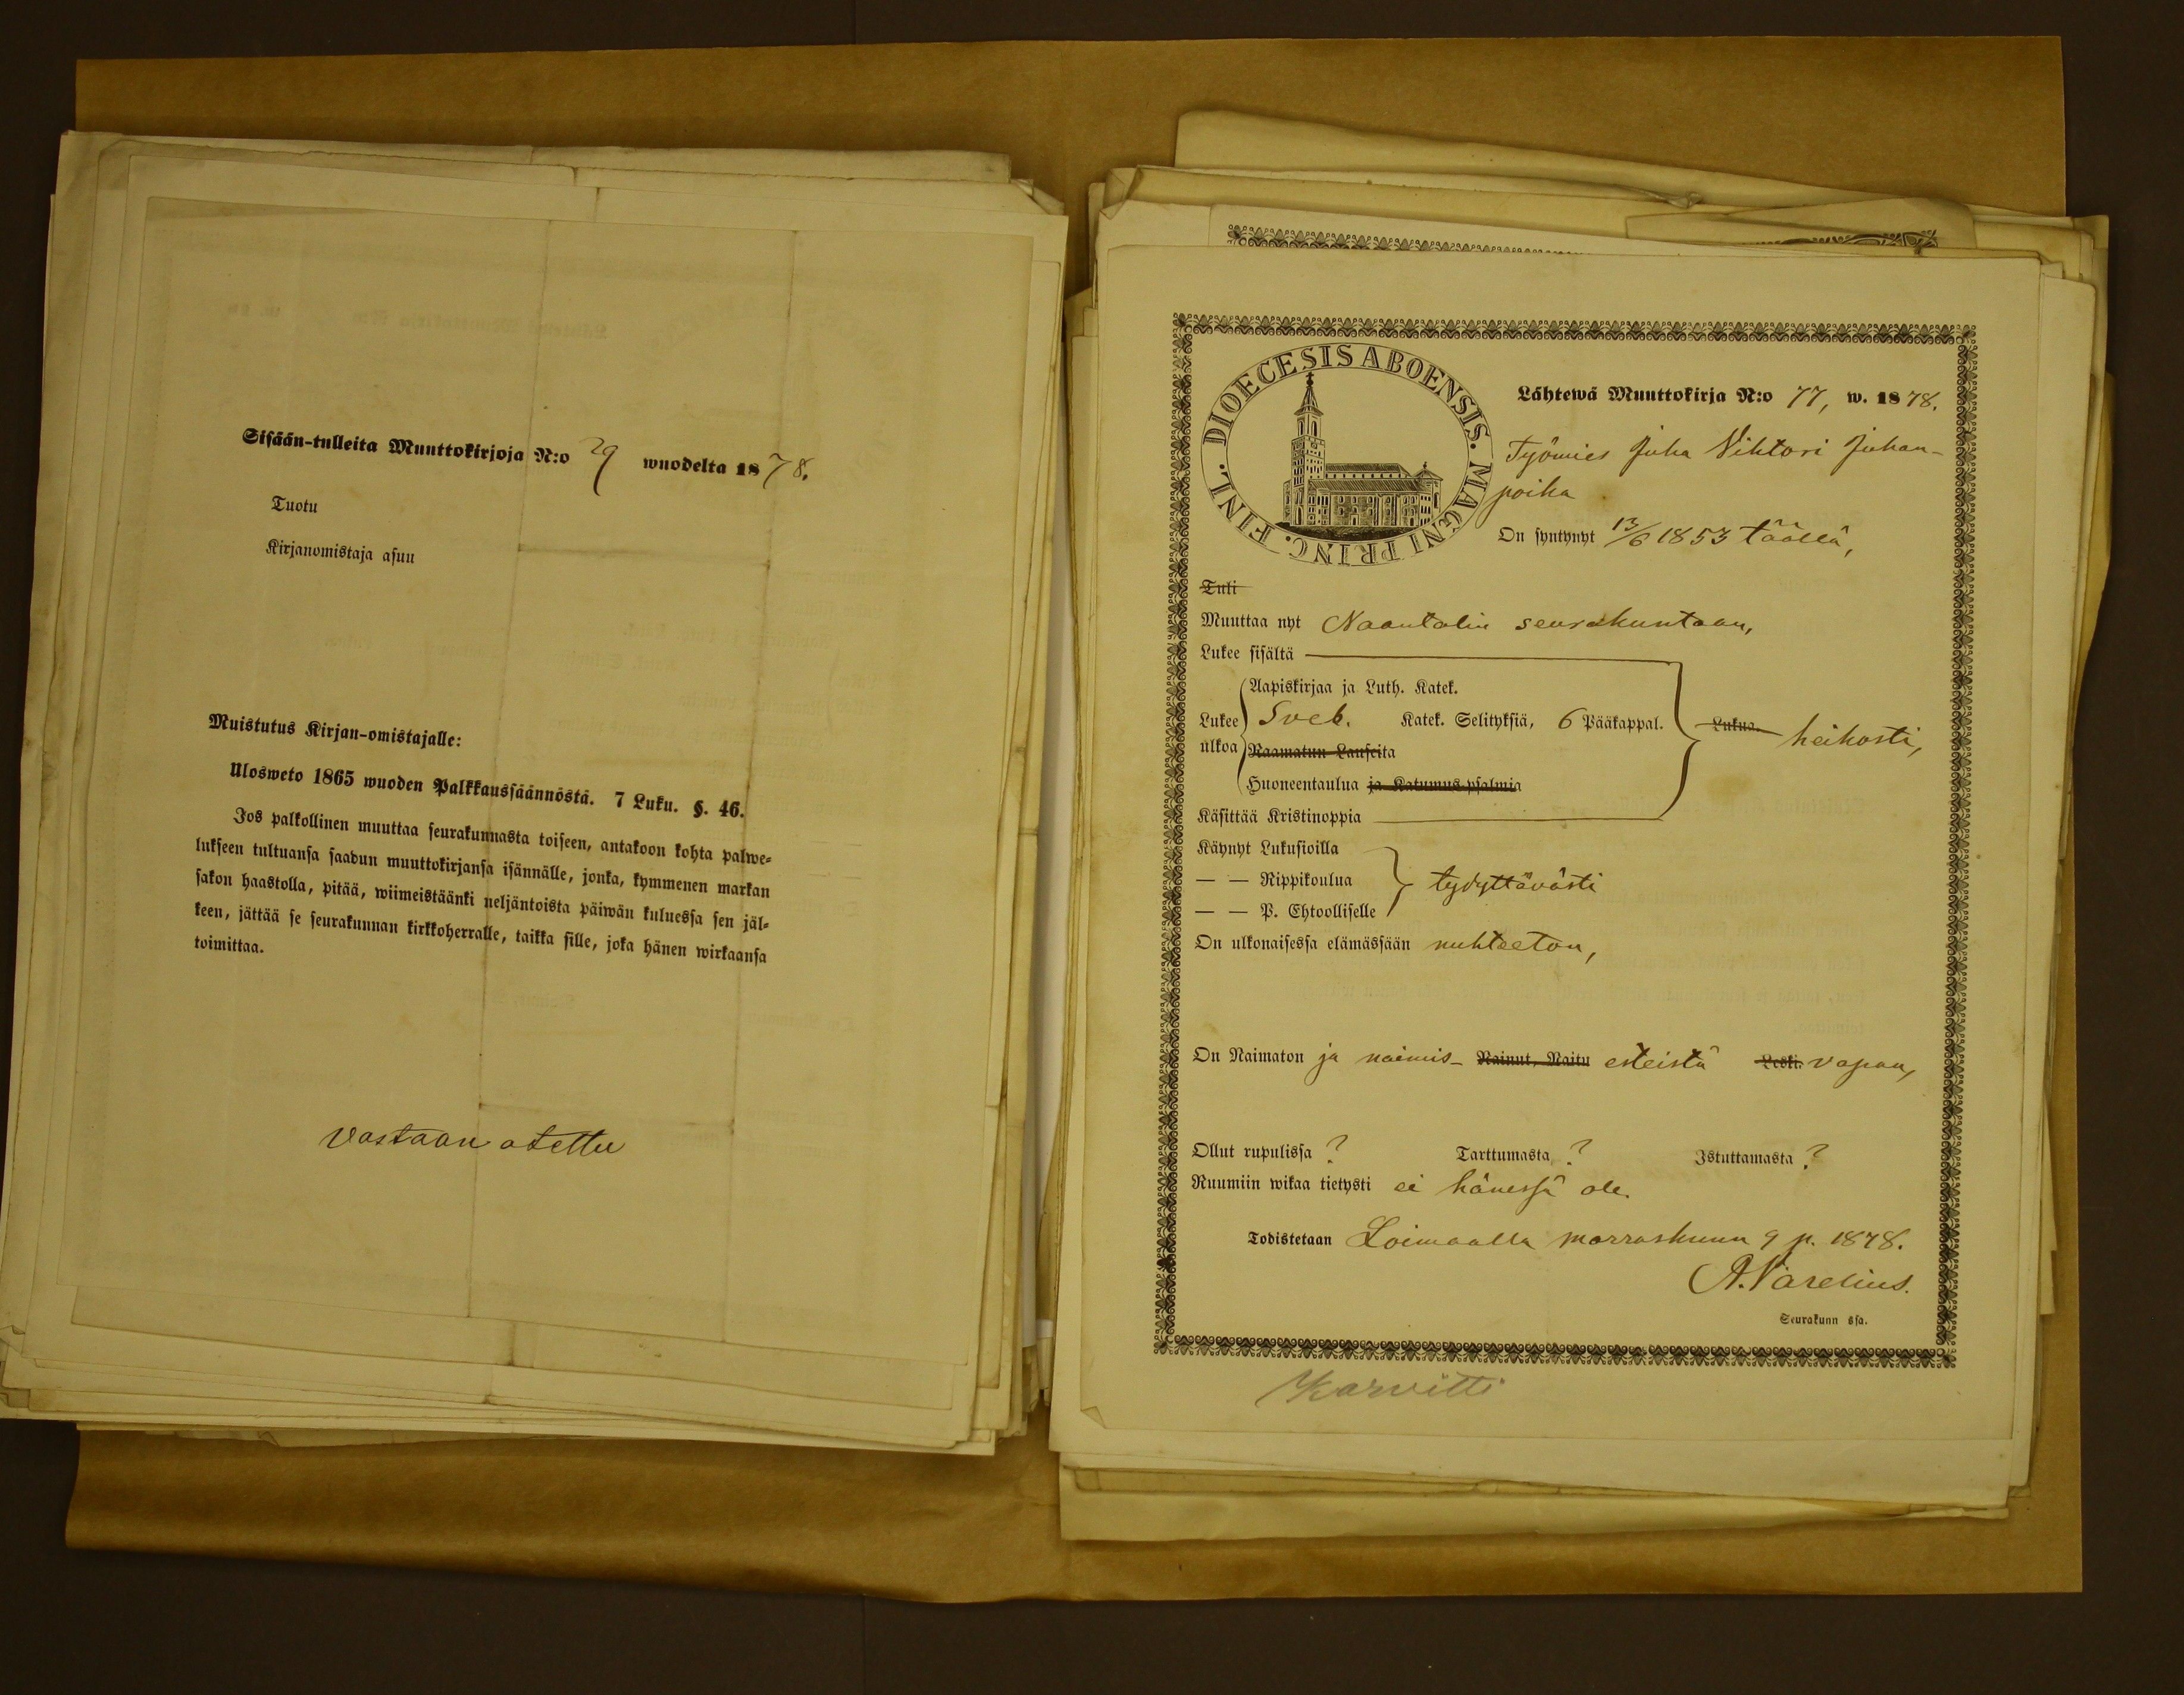 Sisään-tulleita Muuttokirjoja N:o 29 wuodelta 1878.
Tuotu
Kirjanomistaja asuu
Muistutus Kirjan-omistajalle:
Ulosweto 1865 wuoden Palkkaussäännöstä. 7 Luku. §. 46.
Jos palkollinen muuttaa seurakunnasta toiseen, antakoon kohta palwe=
lukseen tultuansa saadun muuttokirjansa isännälle, jonka, kymmenen markan
sakon haastolla, pitää, wiimeistäänki neljäntoista päiwän kuluessa sen jäl=
keen, jättää se seurakunnan kirkkoherralle, taikka sille, joka hänen wirkaansa
toimittaa.
Vastaan otettu
DIOECESIS ABOENSIS. MAGNI PRINC. FINL.
Lähtewä Muuttokirja N:o 77, w. 1878.
Työmies Juha Vihtori Juhan-
poika
On syntynyt 13/6 1853 täällä,
Tuli
Muuttaa nyt Naantalin seurakuntaan,
Lukee sisältä
Aapiskirjaa ja Luth. Katek.
Lukee Sveb. Katek. Selityksiä, 6 Pääkappal. Lukua. heikosti,
ulkoa Raamatun Lauseita
Huoneentaulua ja Katumus-psalmia
Käsittää Kristinoppia
Käynyt Lukusioilla
— — Rippikoulua tydyttävästi
— — P. Ehtoolliselle
On ulkonaisessa elämässään nuhteeton,
On Naimaton ja naimis- Nainut, Naitu esteistä Leski. vapaa,
Ollut rupulissa ? Tarttumasta ? Istuttamasta ?
Ruumiin wikaa tietysti ei hänessä ole.
Todistetaan Loimaalla marraskuun 9 p. 1878.
A. Varelius.
Seurakunn ssa.
Karvitti